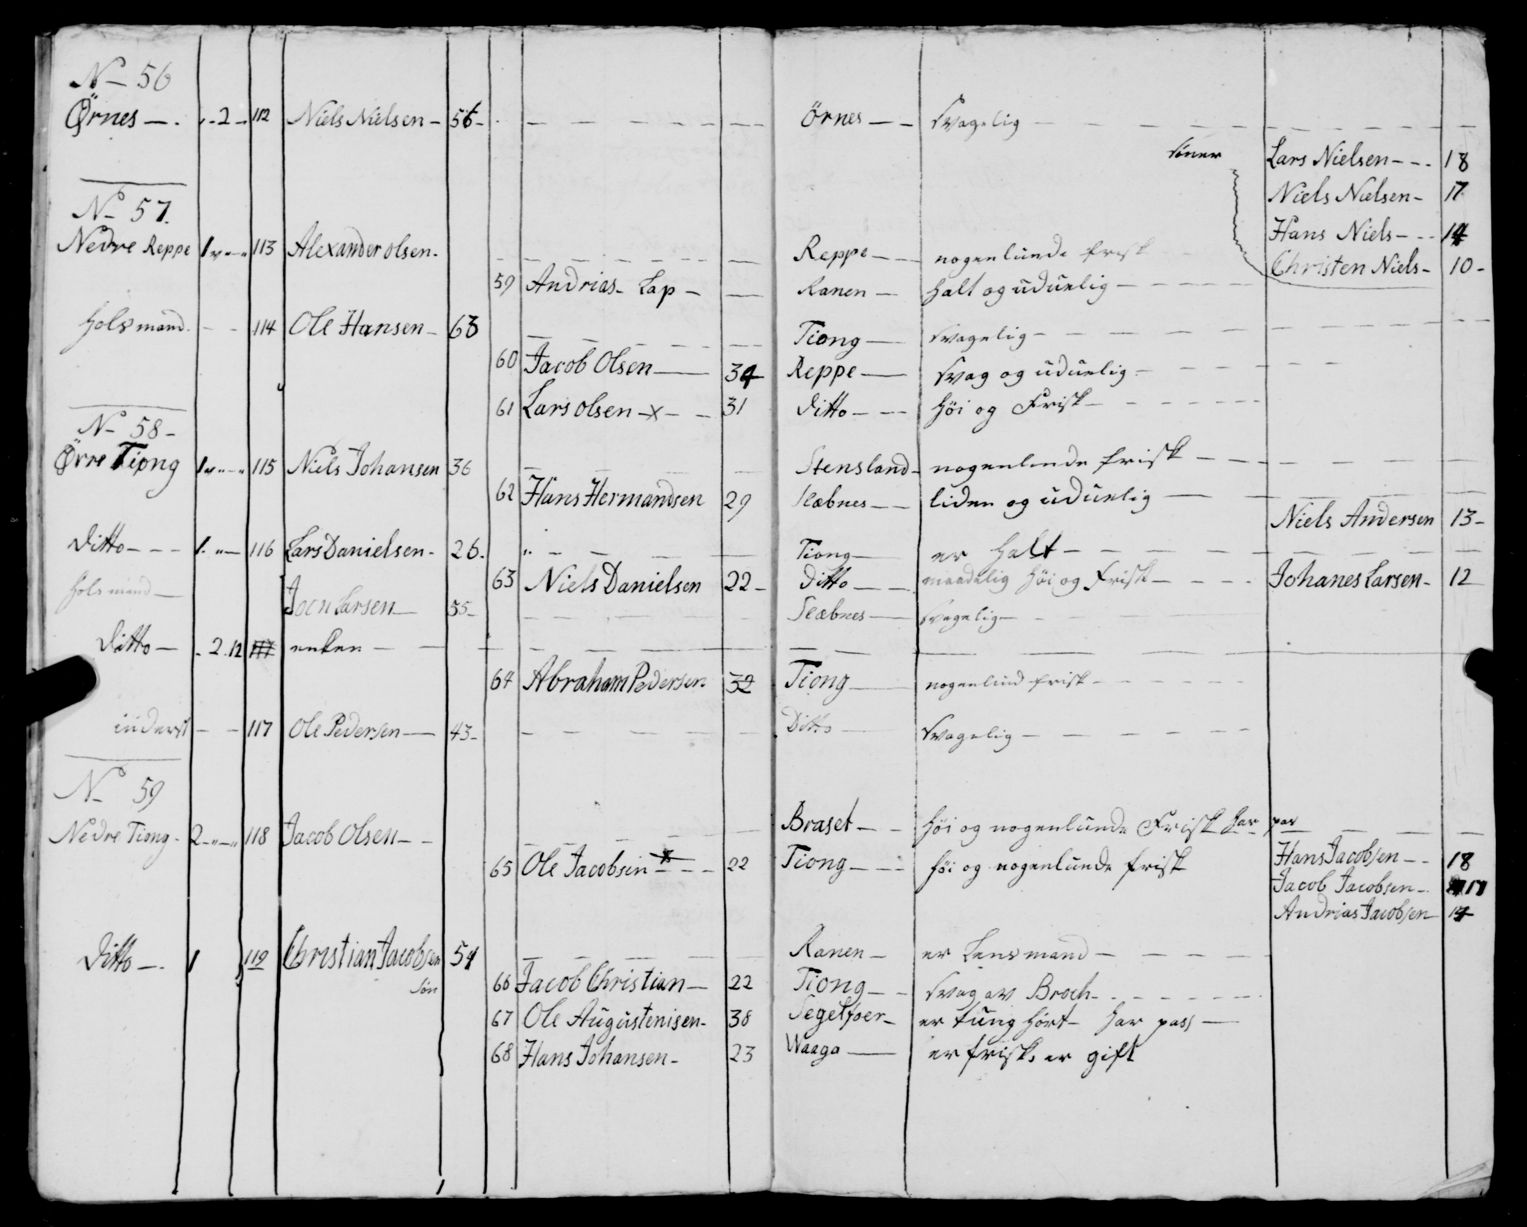 No 56
Örnes — . „ - 2 - 112 Niels Nielsen - 56 - Örnes — svagelig
sönner Lars Nielsen - - - 18
Niels Nielsen - 17
No 57.
Hans Niels - - - 14
Nedre Reppe 1 113 Alexander olsen - Reppe — nogenlunde frisk
Christen Niels - 10 -
59 Andrias - Lap - Ranen — halt og uduelig
holsmand - - 114 Ole Hansen - 63 Tiong — svagelig
60 Jacob Olsen — 34 Reppe — svag og uduelig
61 Lars olsen - x - - 31 ditto - - - höi og Frisk
No 58 -
Övre Tiong 1 115 Niels Johansen 36 Stensland - nogenlunde frisk
62 Hans Hermandsen 29 Slæbnes - - liden og uduelig
Niels Andersen 13 -
ditto - - - 1 116 Lars Danielsen - 26. Tiong — er halt
63 Niels Danielsen 22 - ditto — maadelig höi og Frisk - Johanes Larsen - 12
holsmand — Joen Larsen — 55 - Slæbnes — svagelig
ditto — 2 . 12 117 enken
64 Abraham Pedersen 32 Tiong — nogenlund frisk
inderst - - 117 Ole Pedersen — 43 - Ditto — svagelig
No 59
Nedre Tiong - 2 118 Jacob Olsen - - Braset - - höi og nogenlunde Frisk har pas
65 Ole Jacobsen x - - - 22 Tiong - - - höi og nogenlunde frisk
Hans Jacobsen - - 18
Jacob Jacobsen - 17
Andrias Jacobsen 14
ditto — . 1 119 Christian Jacobsen 54 Ranen — er Lensmand
sön 66 Jacob Christian — 22 Tiong — svag av Broch
67 Ole Augustenisen - 38 Segelfoer - er tung hört - har pass —
68 Hans Johansen - 23 Waaga — er frisk, er gift